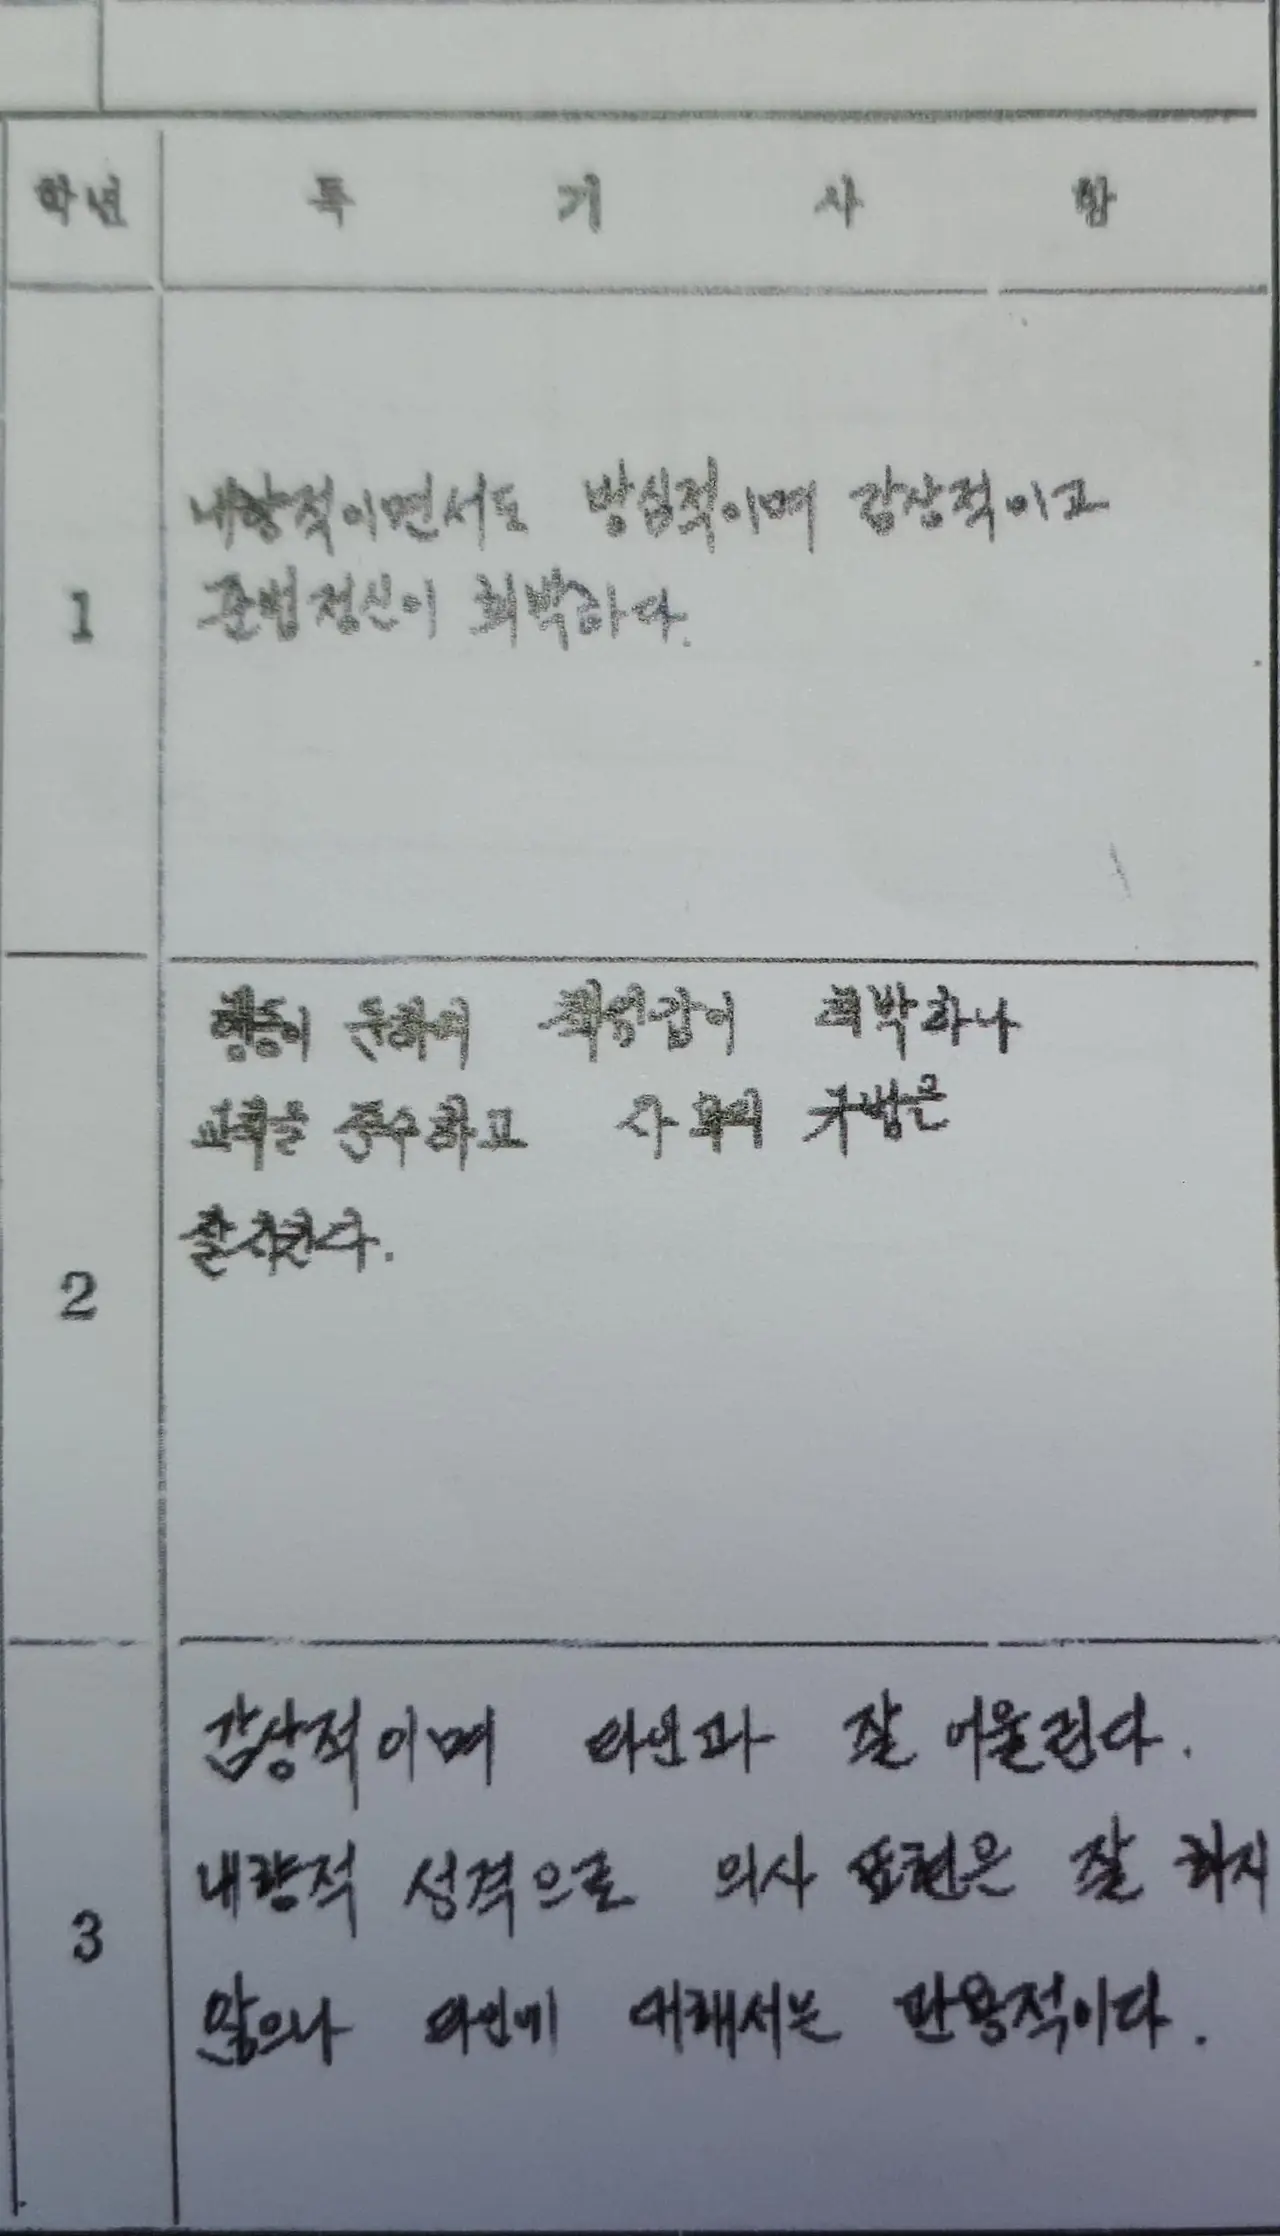 학년 특기사항
1
내향적이면서도 방심적이며 감상적이고
준법정신이 희박하다.
2
행동이 둔하며 책임감이 희박하나
교칙을 준수하고 사회의 규범은
잘 지킨다.
3
감상적이며 타인과 잘 어울린다.
내향적 성격으로 의사 표현은 잘 하지
않으나 타인에 대해서는 관용적이다.